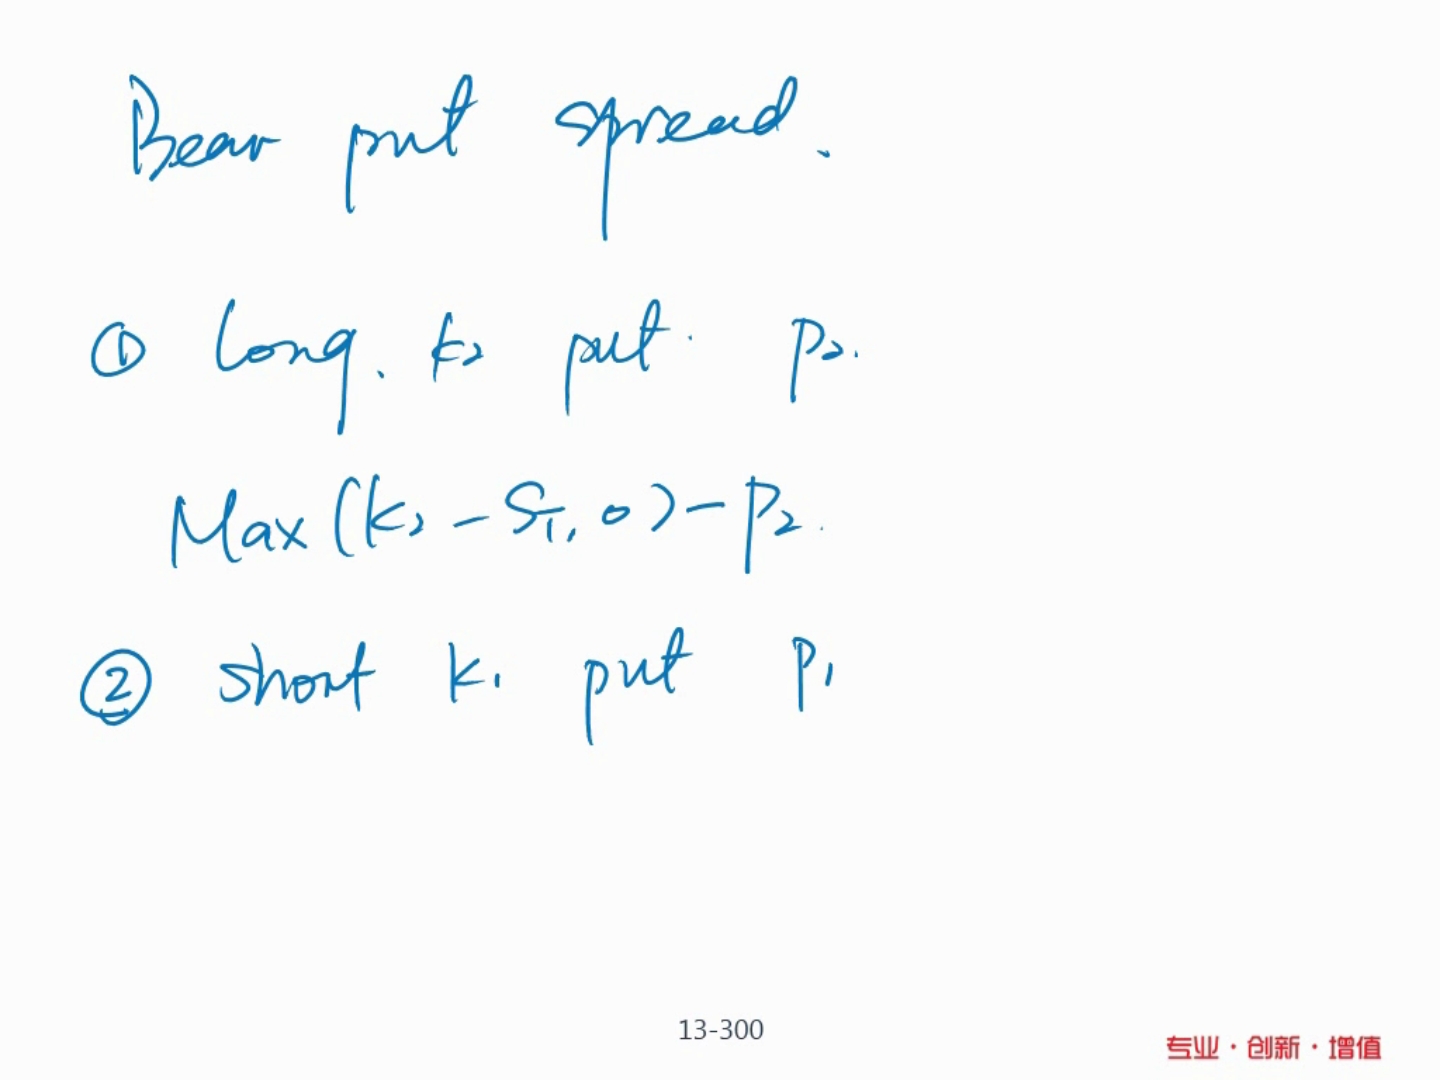 Bear put spread.
① long. k₂ put. P₂.
Max(k₂-S_T,0)-P₂.
② short k₁ put P₁
13-300
专业·创新·增值